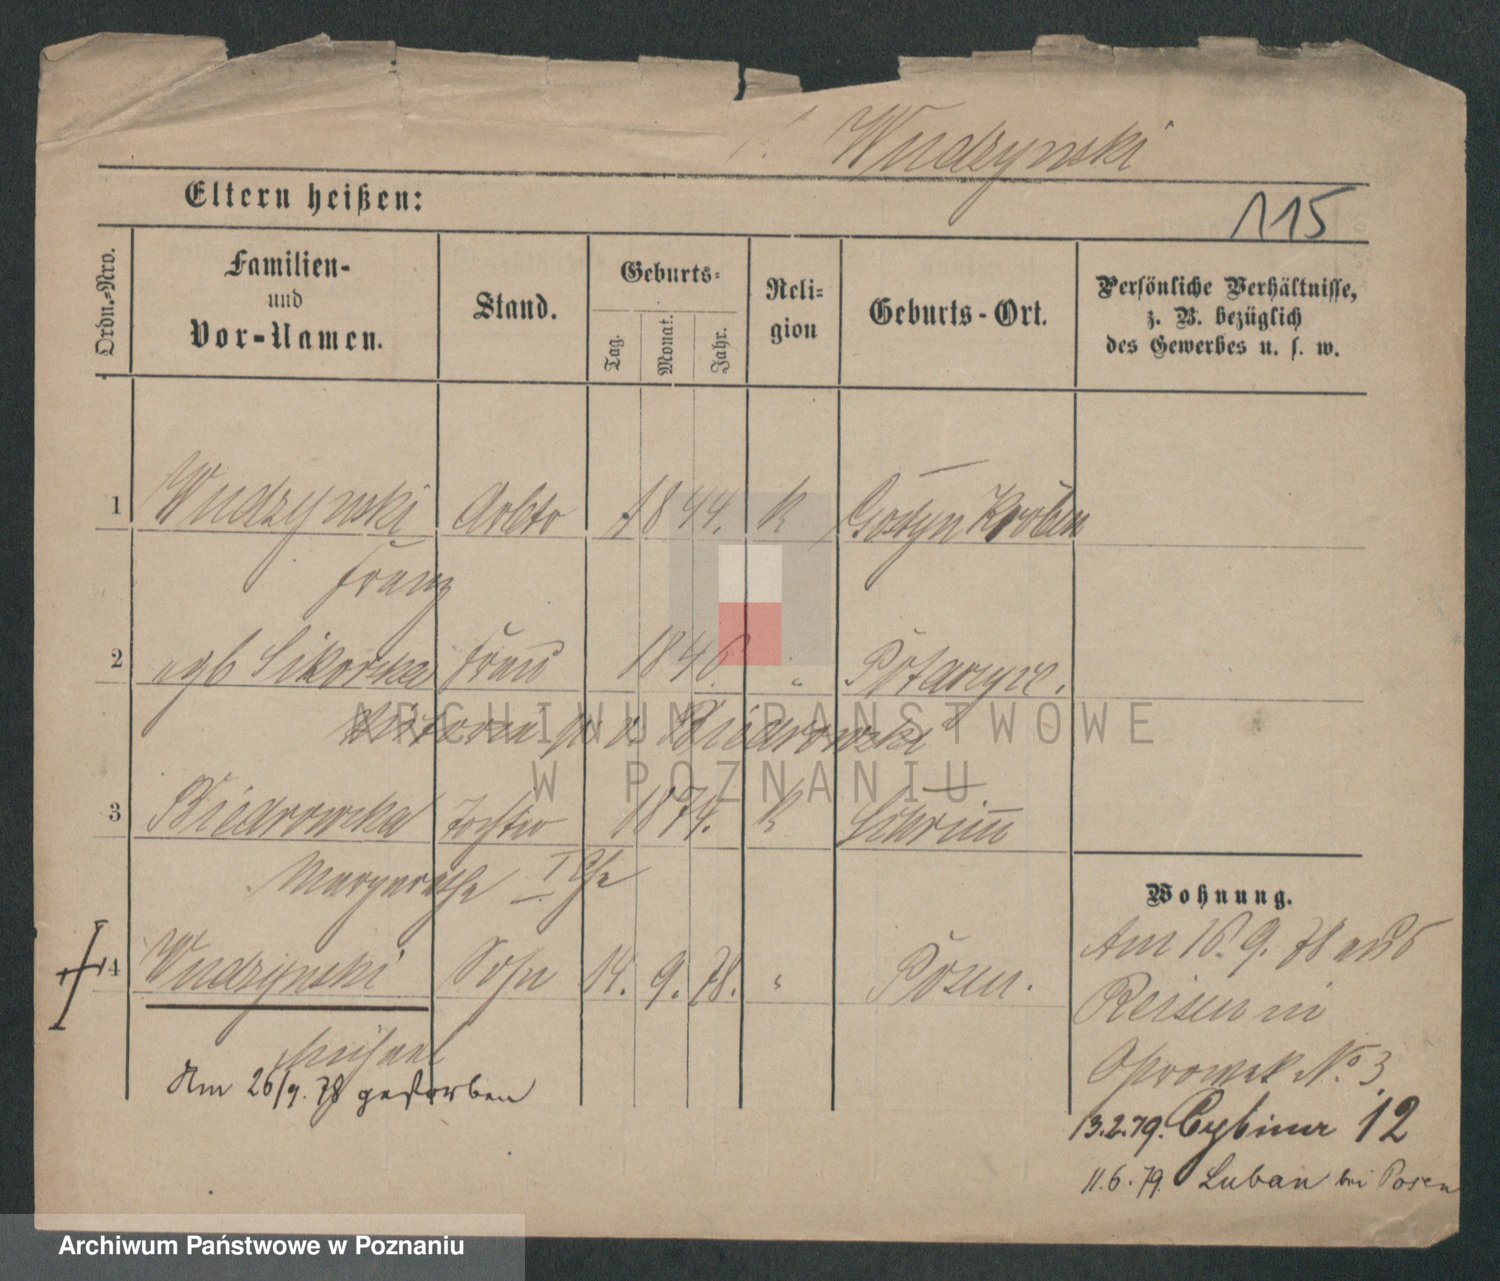 Wudzynski
115
Eltern heißen:
Ordn.-Nro.
Familien-
und
Vor-Namen.
Stand.
Geburts-
Tag.
Monat.
Jahr.
Reli-
gion
Geburts-Ort.
Persönliche Verhältnisse,
z. B. bezüglich
des Gewerbes u. s. w.
1 Wudzynski Arbtr 1844. K Gostyn Kröben
Franz
2 geb Sikorska Frau 1846. " Potarzyce.
Biedrowski
3 Biedrowska Tochter 1874. K Schrimm
Margarethe I Ehe
4 Wudzynski Sohn 14. 9. 78. " Posen.
Michael
Am 26/9. 78 gestorben
Wohnung.
Am 16. 9. 78 aus
Reisen in
No 3
13.2.79. Cybiner 12
11.6.79. Luban bei Posen
ARCHIWUM PAŃSTWOWE
W POZNANIU
Archiwum Państwowe w Poznaniu